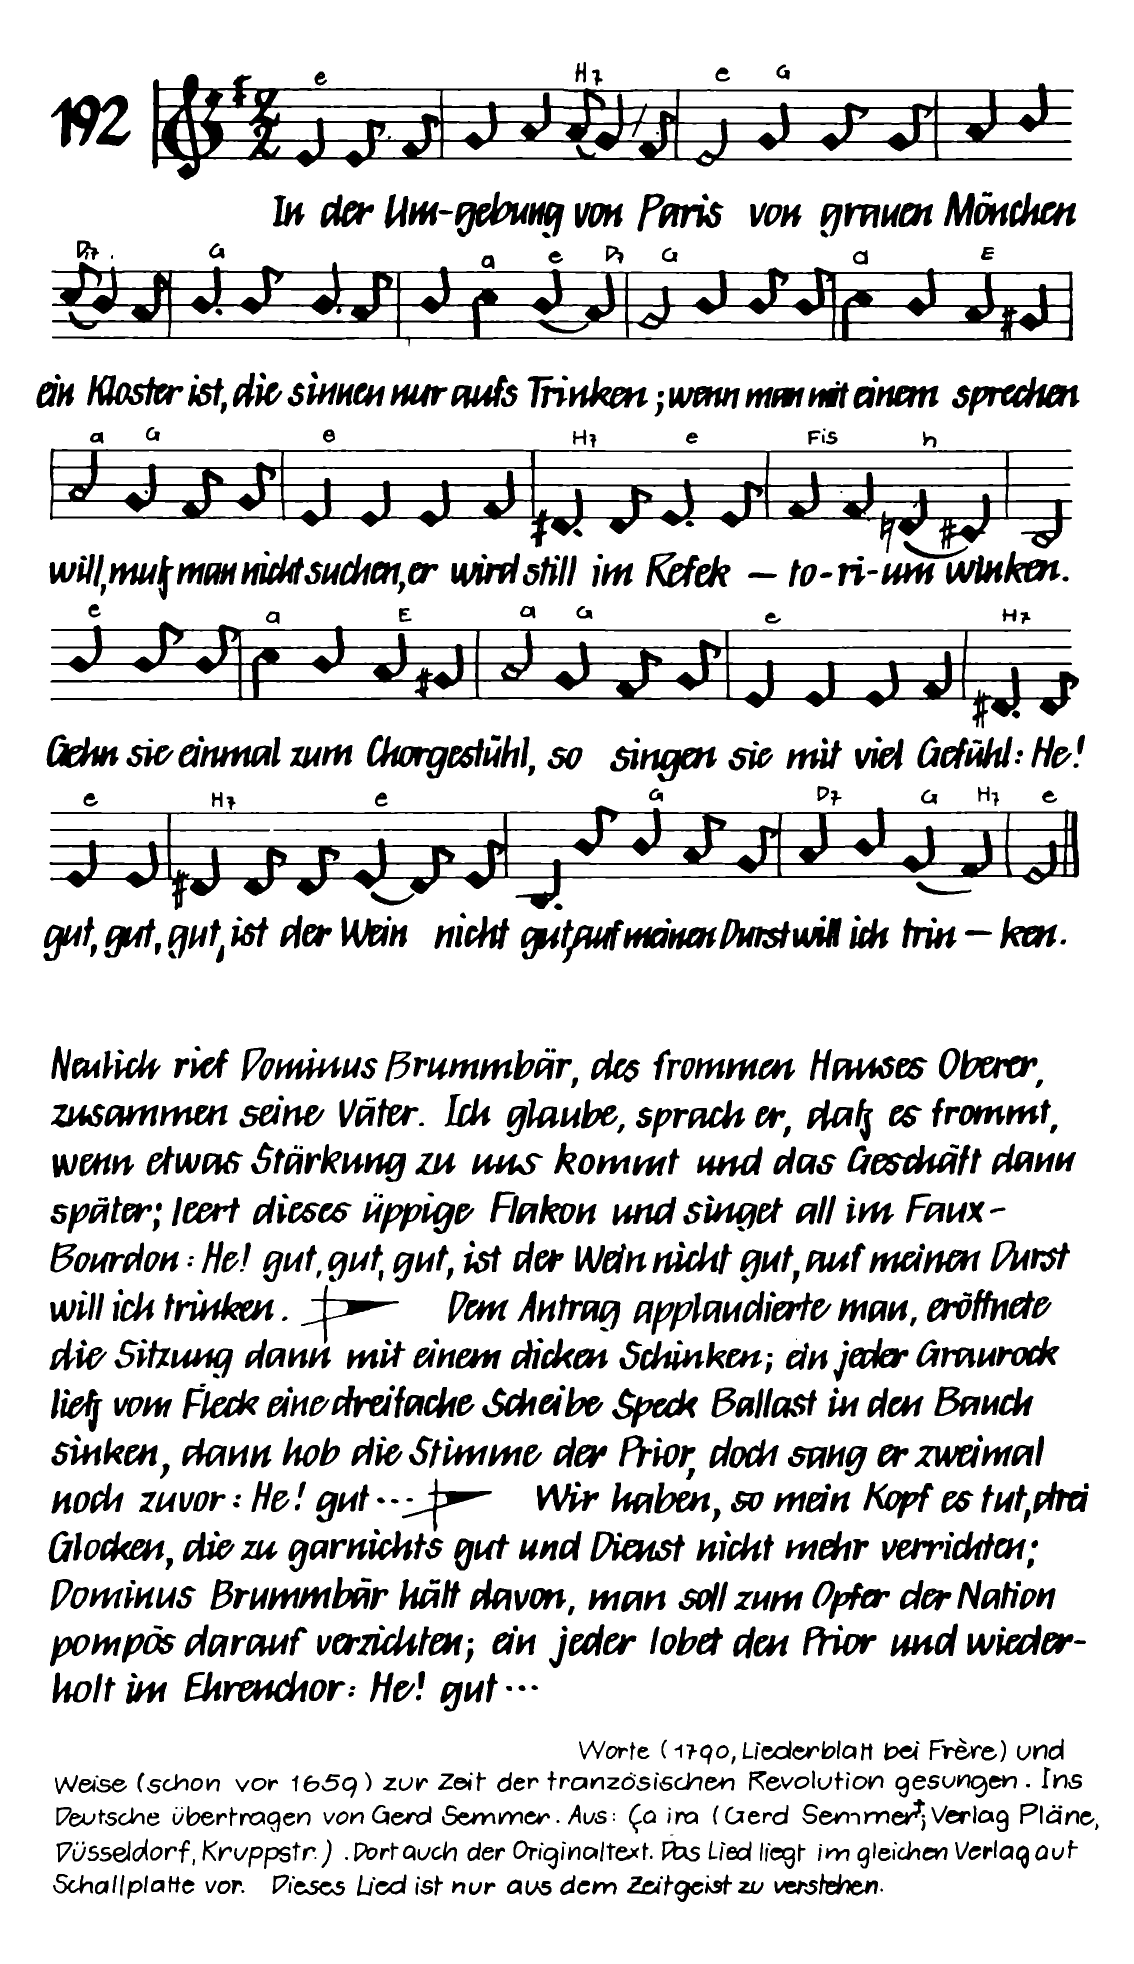 e H7 e G
192
In der Um-gebung von Paris von grauen Mönchen
D7 G a e D7 G a E
ein Kloster ist, die sinnen nur aufs Trinken; wenn man mit einem sprechen
a G e H7 e Fis h
will, muß man nicht suchen, er wird still im Refek – to-ri-um winken.
e a E a G e H7
Gehn sie einmal zum Chorgestühl, so singen sie mit viel Gefühl: He!
e H7 e G D7 G H7 e
gut, gut, gut, ist der Wein nicht gut, auf meinen Durst will ich trin – ken.
Neulich rief Dominus Brummbär, des frommen Hauses Oberer,
zusammen seine Väter. Ich glaube, sprach er, daß es frommt,
wenn etwas Stärkung zu uns kommt und das Geschäft dann
später; leert dieses üppige Flakon und singet all im Faux-
Bourdon: He! gut, gut, gut, ist der Wein nicht gut, auf meinen Durst
will ich trinken. Dem Antrag applaudierte man, eröffnete
die Sitzung dann mit einem dicken Schinken; ein jeder Graurock
ließ vom Fleck eine dreifache Scheibe Speck Ballast in den Bauch
sinken, dann hob die Stimme der Prior, doch sang er zweimal
noch zuvor: He! gut ... Wir haben, so mein Kopf es tut, drei
Glocken, die zu garnichts gut und Dienst nicht mehr verrichten;
Dominus Brummbär hält davon, man soll zum Opfer der Nation
pompös darauf verzichten; ein jeder lobet den Prior und wieder-
holt im Ehrenchor: He! gut ...
Worte (1790, Liederblatt bei Frère) und
Weise (schon vor 1659) zur Zeit der französischen Revolution gesungen. Ins
Deutsche übertragen von Gerd Semmer. Aus: Ça ira (Gerd Semmer†; Verlag Pläne,
Düsseldorf, Kruppstr.) . Dort auch der Originaltext. Das Lied liegt im gleichen Verlag auf
Schallplatte vor. Dieses Lied ist nur aus dem Zeitgeist zu verstehen.